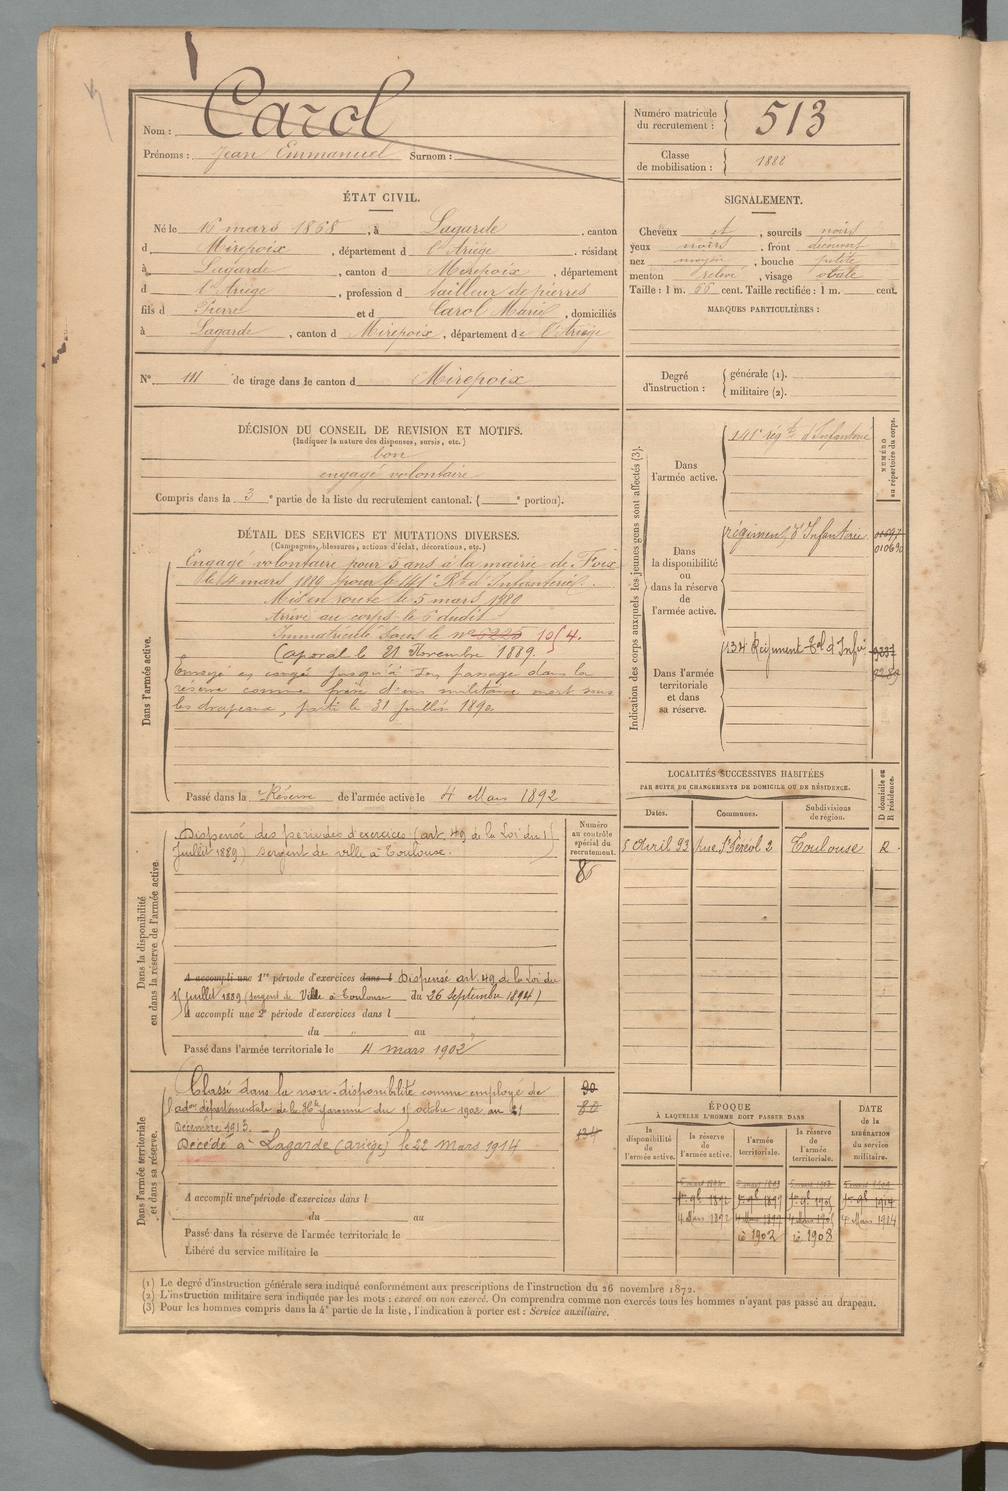 Nom : Carol
Prénoms : Jean Emmanuel Surnom :
Numéro matricule du recrutement : 513
Classe de mobilisation : 1888
ÉTAT CIVIL.
Né le 16 mars 1868, à Lagarde, canton
d Mirepoix, département d l'Ariège, résidant
à Lagarde, canton d Mirepoix, département
d l'Ariège, profession d tailleur de pierres
fils d Pierre et d Carol Marie, domiciliés
à Lagarde, canton d Mirepoix, département de l'Ariège
SIGNALEMENT.
Cheveux et, sourcils noirs
yeux noirs, front découvert
nez moyen, bouche petite
menton relevé, visage ovale
Taille : 1 m. 66 cent. Taille rectifiée : 1 m. cent.
MARQUES PARTICULIÈRES :
N° 111 de tirage dans le canton d Mirepoix
Degré d'instruction : générale (1).
militaire (2).
DÉCISION DU CONSEIL DE REVISION ET MOTIFS.
(Indiquer la nature des dispenses, sursis, etc.)
bon
engagé volontaire
Compris dans la 3e partie de la liste du recrutement cantonal. ( e portion).
DÉTAIL DES SERVICES ET MUTATIONS DIVERSES.
(Campagnes, blessures, actions d'éclat, décorations, etc.)
Dans l'armée active.
Engagé volontaire pour 5 ans à la mairie de Foix
le 4 mars pour le 141e Rt d'Infanterie.
Mis en route le 5 mars
Arrivé au corps le 6 dudit
Immatriculé sous le n°
Caporal le 21 Novembre 1889.
Envoyé en congé jusqu'à son passage dans la
réserve comme frère d'un militaire mort sous
les drapeaux, parti le 31 Juillet
Passé dans la Réserve de l'armée active le 4 Mars 1892
Indication des corps auxquels les jeunes gens sont affectés (3).
NUMÉRO au répertoire du corps.
Dans l'armée active.
141e régt d'Infanterie
Dans la disponibilité ou dans la réserve de l'armée active.
régiment d'Infanterie
Dans l'armée territoriale et dans sa réserve.
134 Régiment Tal d'Infie
LOCALITÉS SUCCESSIVES HABITÉES
PAR SUITE DE CHANGEMENTS DE DOMICILE OU DE RÉSIDENCE.
Dates. Communes. Subdivisions de région. D domicile ou R résidence.
5 Avril 93 Rue St Féréol 2 Toulouse R
Dans la disponibilité ou dans la réserve de l'armée active.
Numéro au contrôle spécial du recrutement.
Dispensé des périodes d'exercices (art. 49 de la Loi du 15
Juillet 1889) sergent de ville à Toulouse.
A accompli une 1re période d'exercices dans l Dispensé art. 49 de la Loi du
15 juillet 1889 (sergent de Ville à Toulouse du 26 Septembre 1894)
A accompli une 2e période d'exercices dans l
du au
Passé dans l'armée territoriale le 4 mars 1902
Dans l'armée territoriale et dans sa réserve.
Classé dans la non-disponibilité comme employé de
l'adon départementale de la Hte garonne du octobre 1902 au 21
Décembre 1913.
Décédé à Lagarde (ariège) le 22 Mars 1914
A accompli une période d'exercices dans l
du au
Passé dans la réserve de l'armée territoriale le
Libéré du service militaire le
ÉPOQUE
À LAQUELLE L'HOMME DOIT PASSER DANS
la disponibilité de l'armée active. la réserve de l'armée active. l'armée territoriale. la réserve de l'armée territoriale.
DATE de la LIBÉRATION du service militaire.
4 Mars 1892
4 Mars 1914
1902
1908
(1) Le degré d'instruction générale sera indiqué conformément aux prescriptions de l'instruction du 26 novembre 1872.
(2) L'instruction militaire sera indiquée par les mots : exercé ou non exercé. On comprendra comme non exercés tous les hommes n'ayant pas passé au drapeau.
(3) Pour les hommes compris dans la 4e partie de la liste, l'indication à porter est : Service auxiliaire.